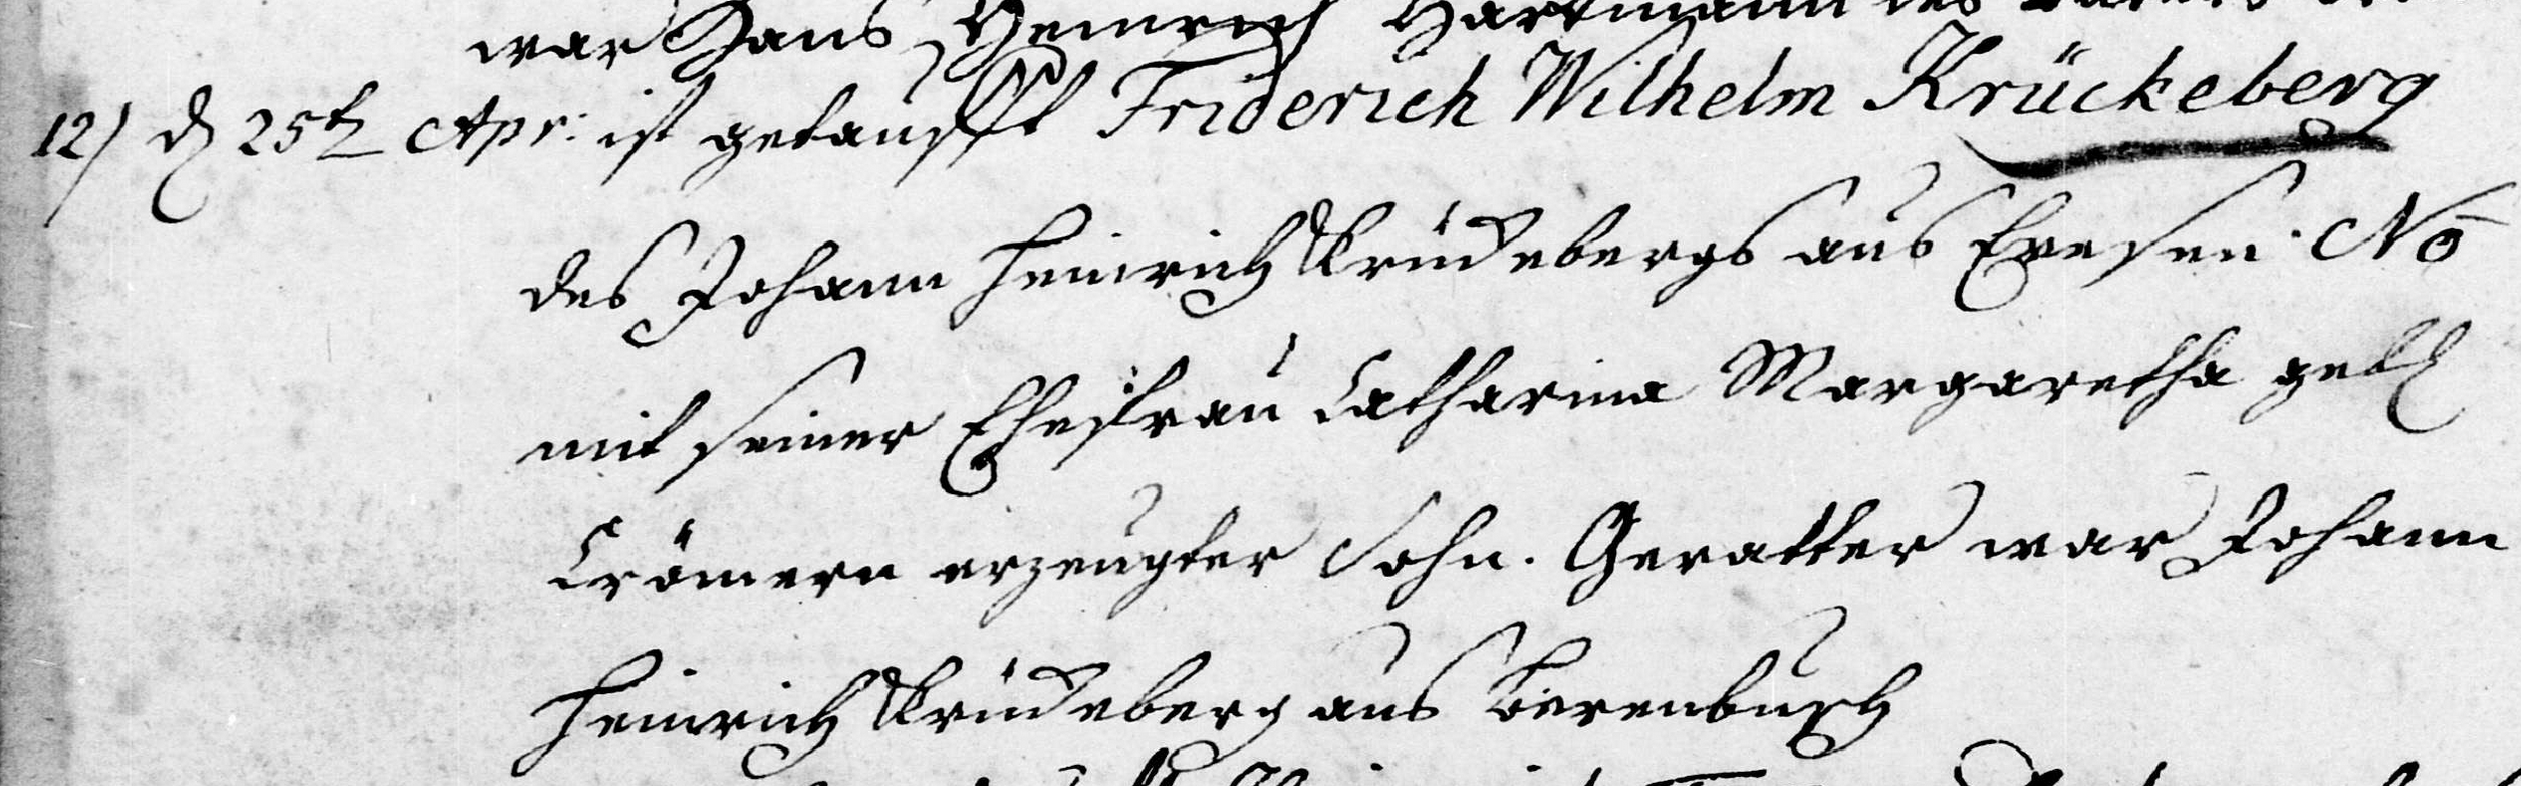 war Hans Henrich Hartmann des
12) d 25t Apr: ist getaufft Friderich Wilhelm Krückeberg
des Johann Heinrich Krückebergs aus Evesen No
mit seiner Ehefrau Catharina Margaretha geb
Crömern erzeugter Sohn. Gevatter war Johann
Heinrich Krückeberg aus Berenbusch